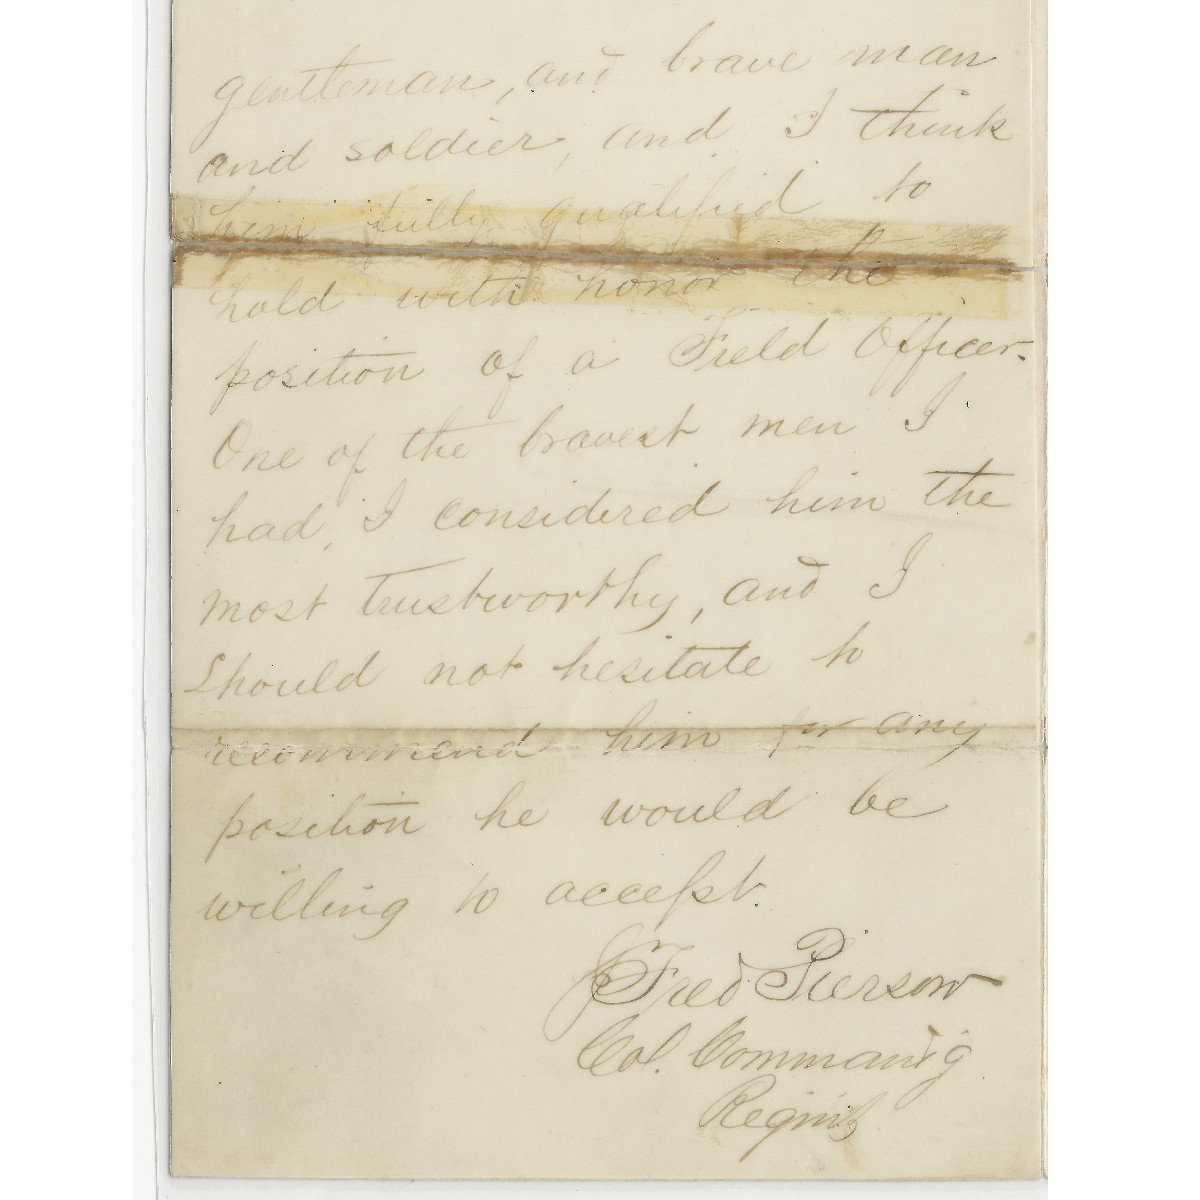 gentleman, and brave man
and soldier, and I think
him fully qualified to
hold with honor the
position of a Field Officer.
One of the bravest men I
had, I considered him the
most trustworthy, and I
should not hesitate to
recommend him for any
position he would be
willing to accept.
J Fred Pierson
Col. Commandg
Regmt